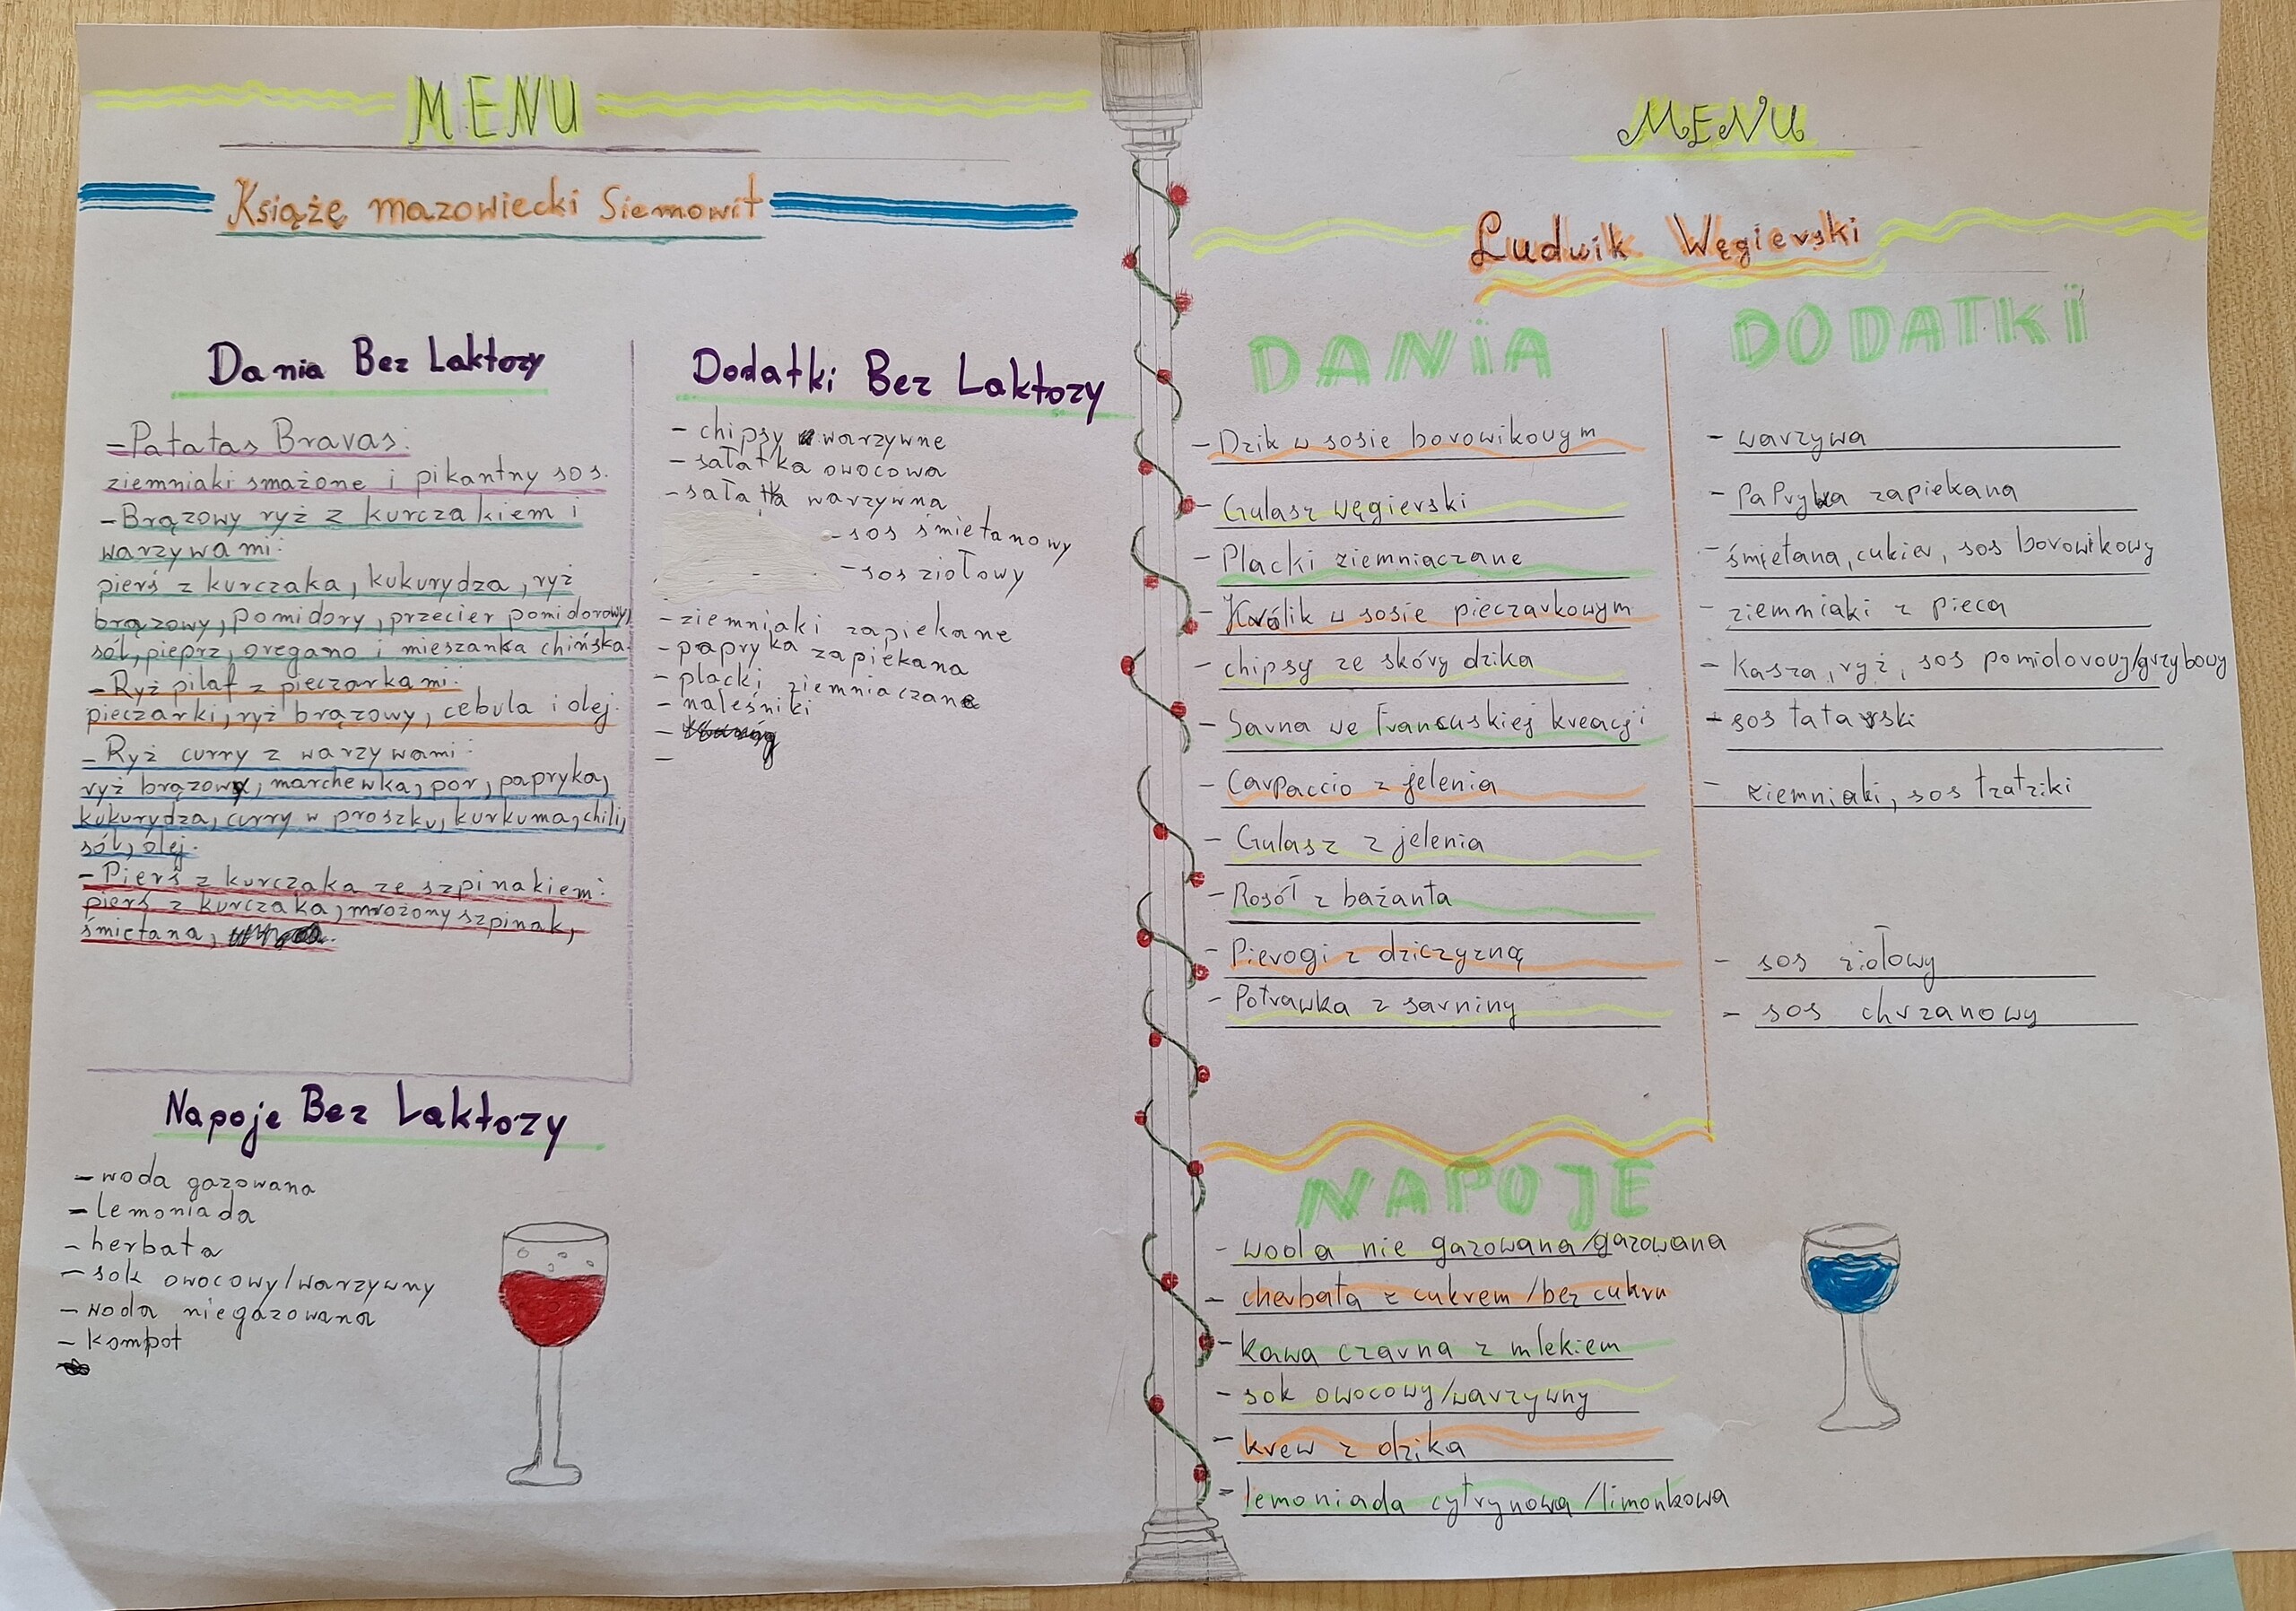 MENU
Książę mazowiecki Siemowit
Dania Bez Laktozy
- Patatas Bravas:
ziemniaki smażone i pikantny sos.
- Brązowy ryż z kurczakiem i
warzywami:
pierś z kurczaka, kukurydza, ryż
brązowy, pomidory, przecier pomidorowy,
sól, pieprz, oregano i mieszanka chińska.
- Ryż pilaf z pieczarkami:
pieczarki, ryż brązowy, cebula i olej.
- Ryż curry z warzywami:
ryż brązowy, marchewka, por, papryka,
kukurydza, curry w proszku, kurkuma, chili,
sól, olej.
- Pierś z kurczaka ze szpinakiem:
pierś z kurczaka, mrożony szpinak,
śmietana,
Dodatki Bez Laktozy
- chipsy warzywne
- sałatka owocowa
- sałatka warzywna
- sos śmietanowy
- sos ziołowy
- ziemniaki zapiekane
- papryka zapiekana
- placki ziemniaczane
- naleśniki
-
-
Napoje Bez Laktozy
- woda gazowana
- lemoniada
- herbata
- sok owocowy/warzywny
- woda niegazowana
- kompot
MENU
Ludwik Węgierski
DANIA
- Dzik w sosie borowikowym
- Gulasz węgierski
- Placki ziemniaczane
- Królik w sosie pieczarkowym
- chipsy ze skóry dzika
- Sarna we Francuskiej kreacji
- Carpaccio z jelenia
- Gulasz z jelenia
- Rosół z bażanta
- Pierogi z dziczyzną
- Potrawka z sarniny
DODATKI
- warzywa
- Papryka zapiekana
- śmietana, cukier, sos borowikowy
- ziemniaki z pieca
- kasza, ryż, sos pomidorowy/grzybowy
- sos tatarski
- ziemniaki, sos tzatziki
- sos ziołowy
- sos chrzanowy
NAPOJE
- woda nie gazowana/gazowana
- cherbata z cukrem/bez cukru
- kawa czarna z mlekiem
- sok owocowy/warzywny
- krew z dzika
- lemoniada cytrynowa/limonkowa